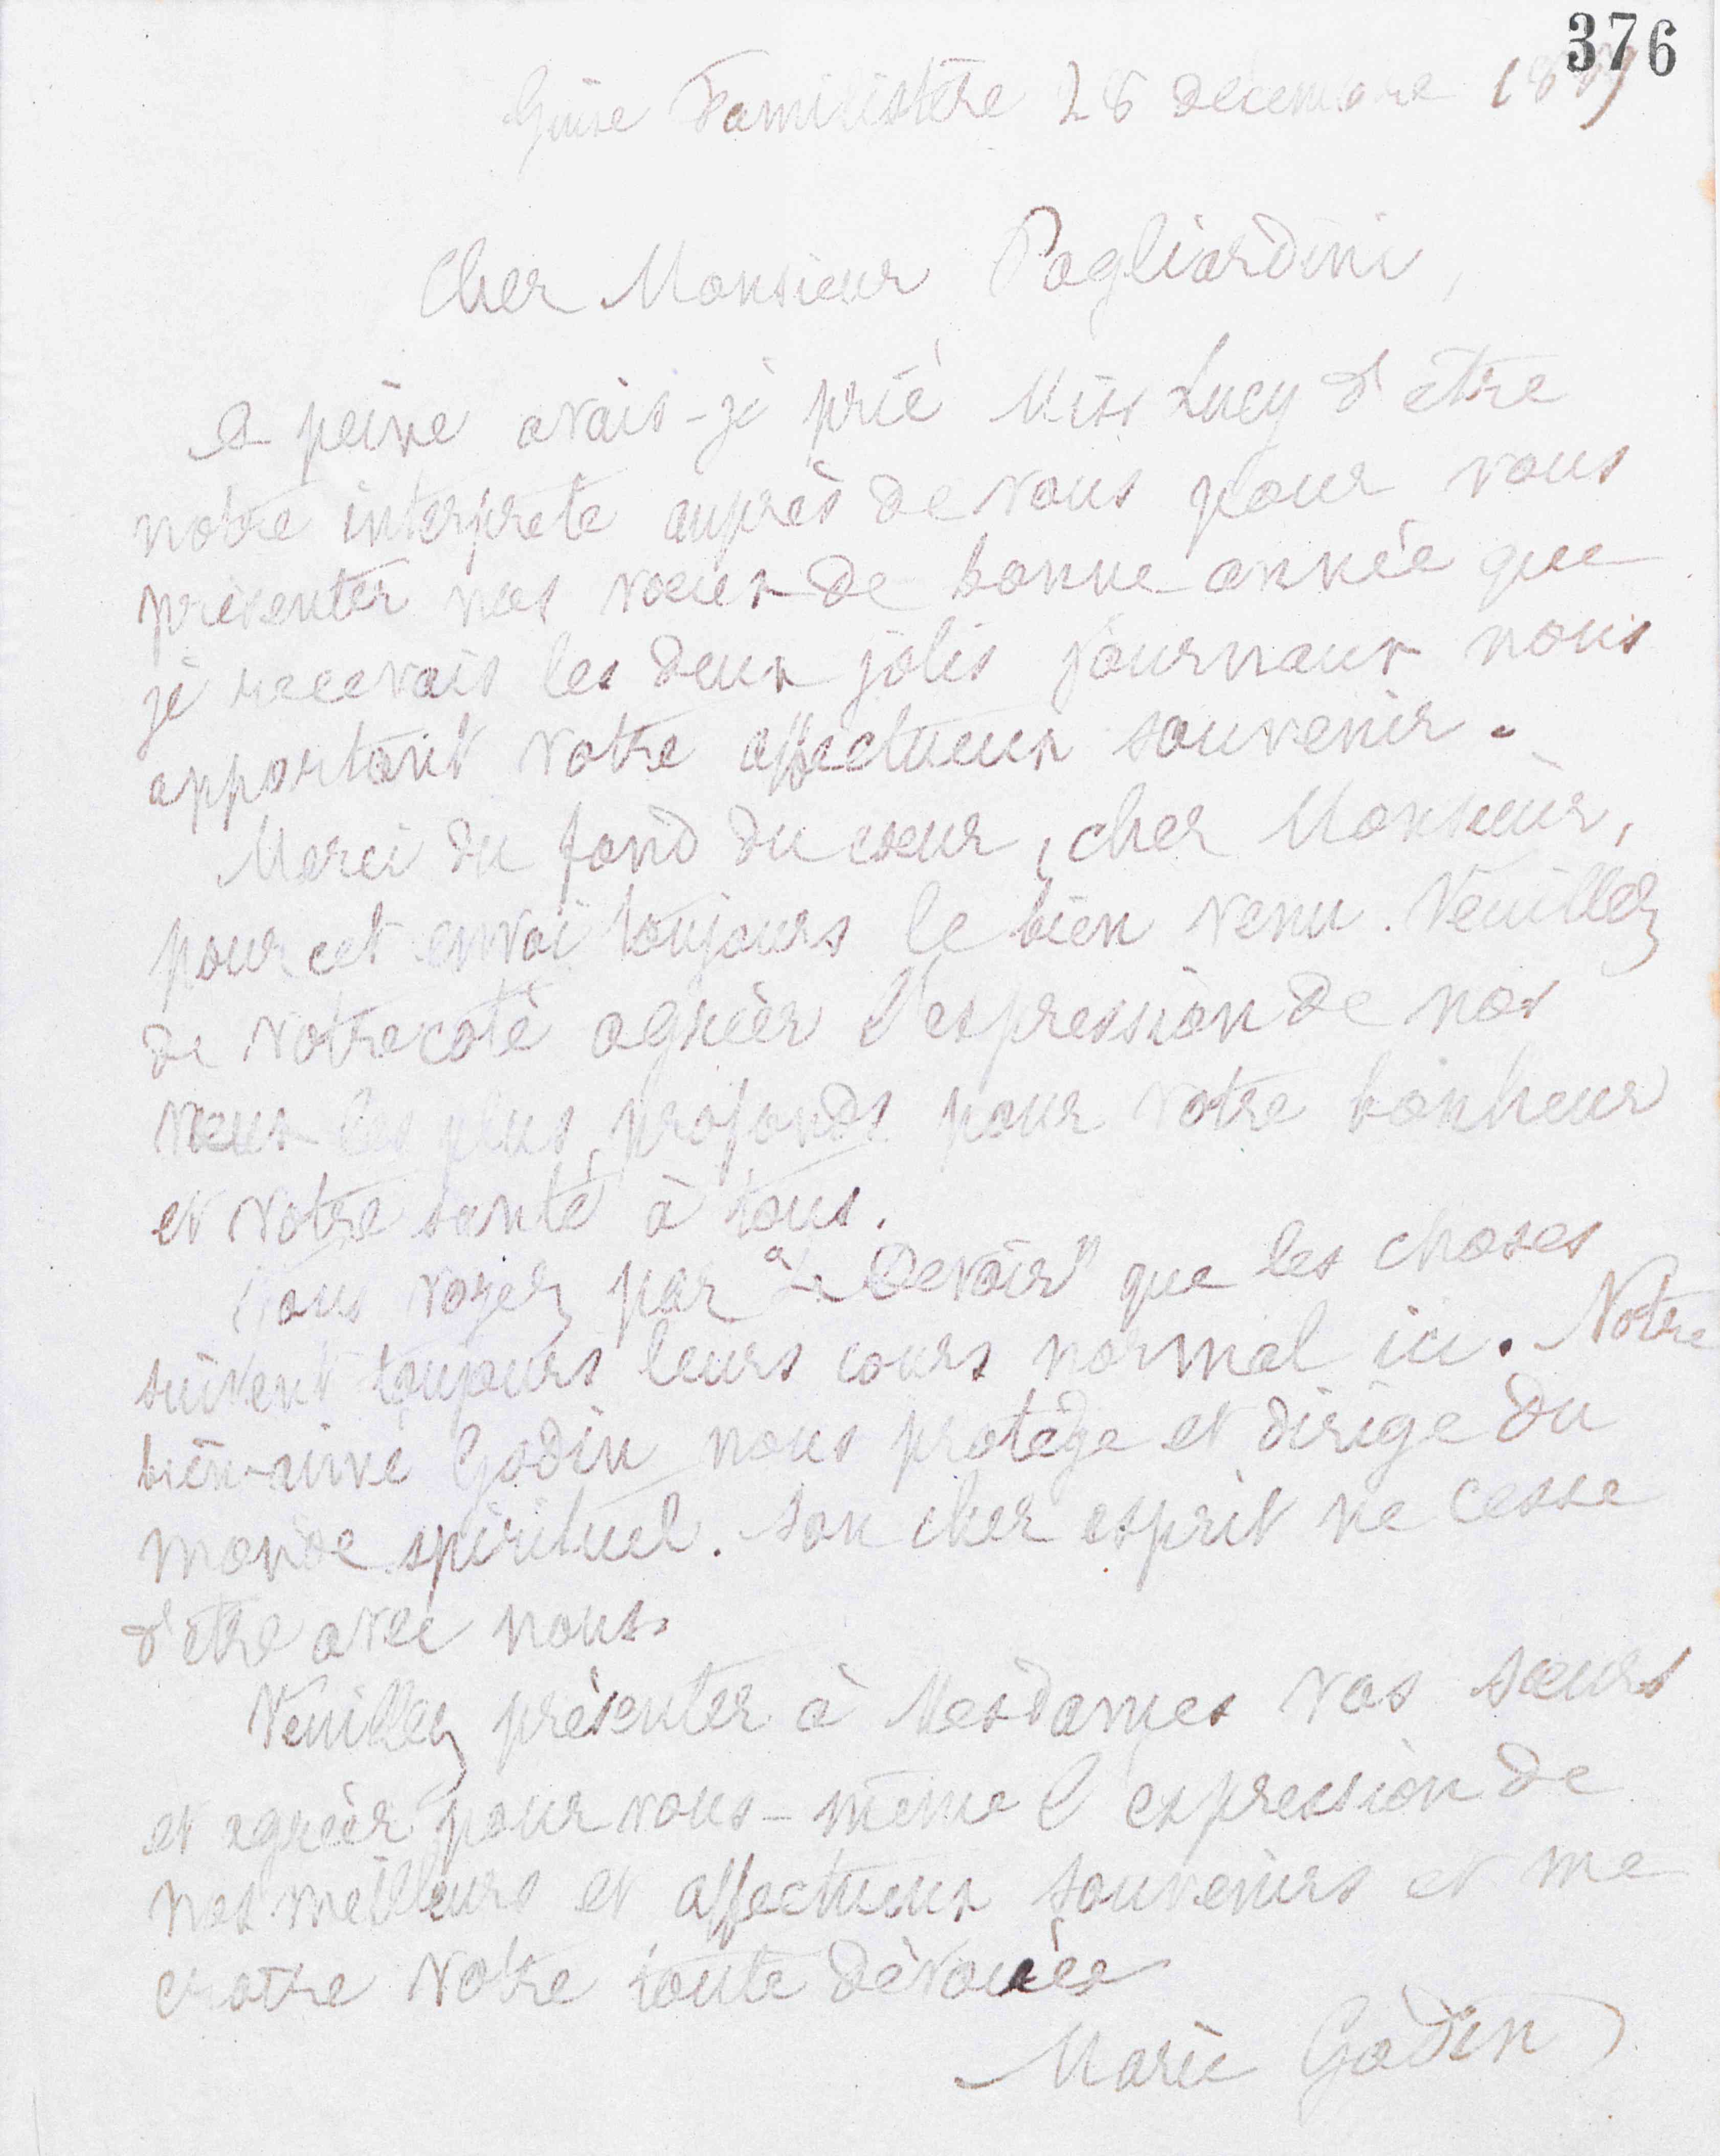 376
Guise Familistère 28 décembre
Cher Monsieur Pagliardini,
A peine avais-je prié Miss Lucy d'être
notre interprète auprès de vous pour vous
présenter nos vœux de bonne année que
je recevais les deux jolis journaux nous
apportant votre affectueux souvenir.
Merci du fond du cœur, cher Monsieur,
pour cet envoi toujours le bien venu. Veuillez
de votre côté agréer l'expression de nos
vœux les plus profonds pour votre bonheur
et votre santé à tous.
Vous voyez par "Le Devoir" que les choses
suivent toujours leurs cours normal ici. Notre
bien-aimé Godin nous protège et dirige du
monde spirituel. Son cher esprit ne cesse
d'être avec nous.
Veuillez présenter à Mesdames vos sœurs
et agréer pour vous-même l'expression de
nos meilleurs et affectueux souvenirs et me
croire votre toute dévouée
Marie Godin